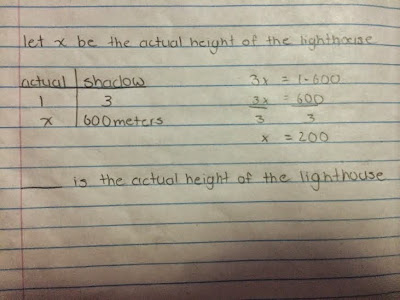 let x be the actual height of the lighthouse
actual | shadow 3x = 1·600
1 | 3 3x = 600
x | 600 meters 3 3
x = 200
____ is the actual height of the lighthouse